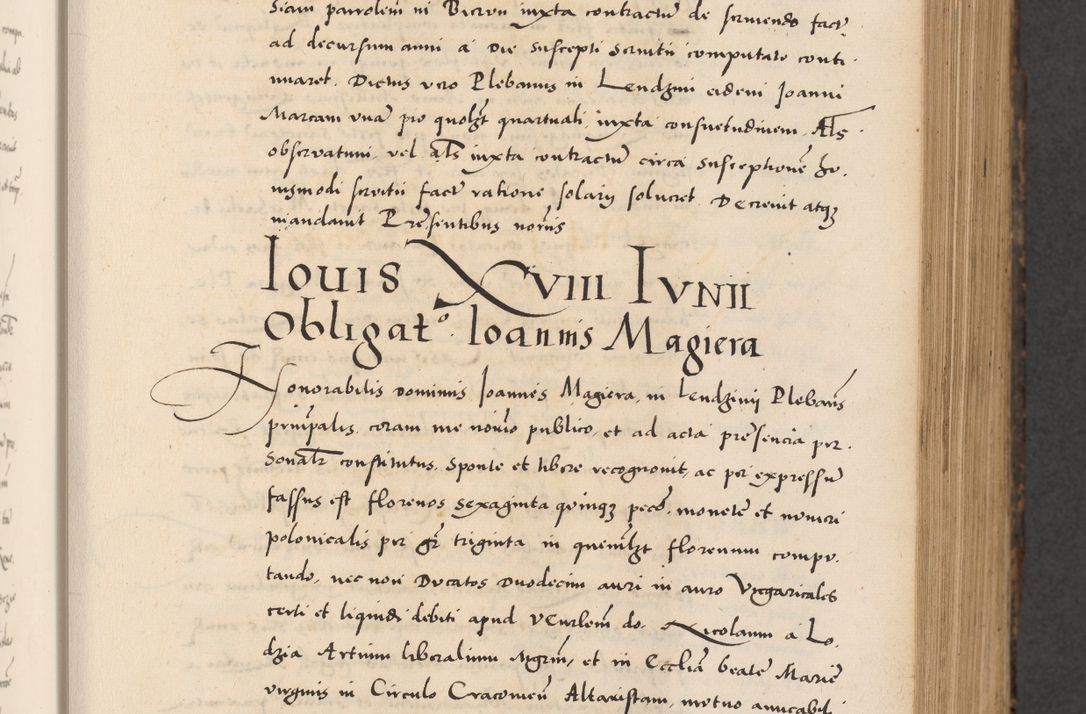 siam parrolem in Bierun iuxta contractū de seruiendo factū
ad decursum anni a die suscepti seruitii computato conti-
nuaret. Dictus vero Plebanus in Lendzini eidem Ioanni
Marcam vnā pro quolꝫt quartuali, iuxta consuetudinem Als
obseruatum, vel als iuxta contractū circa susceptionē hu-
iusmodi seruitii factū ratione solarij solueret. Decreuit atqꝫ
mandauit Prēsentibus nos̄tris
Iouis XVIII Iunii
Obligato Ioannis Magiera
Honorabilis dominus Ioannes Magiera, in Lendzinij Plebanꝰ
prin̄palis, coram me noīo publico, et ad acta prēsencia per-
sonalr̄ constitutus, sponte et libere recognouit, ac per expressū
fassus est florenos sexaginta quinqꝫ peco, monetē et numeri
polonicalis per gr̄ triginta in quemlꝫt florenum compu-
tando, nec non Ducatos duodecim auri in auro Vngaricales
certi et liquidi debiti apud Venrlem do. Nicolaum a Lo-
dzia Artium liberalium Mgrm, et in Ecclīa beatē Mariē
virginis in Circulo Cracouien̄ Altaristam, mutuo amicabili